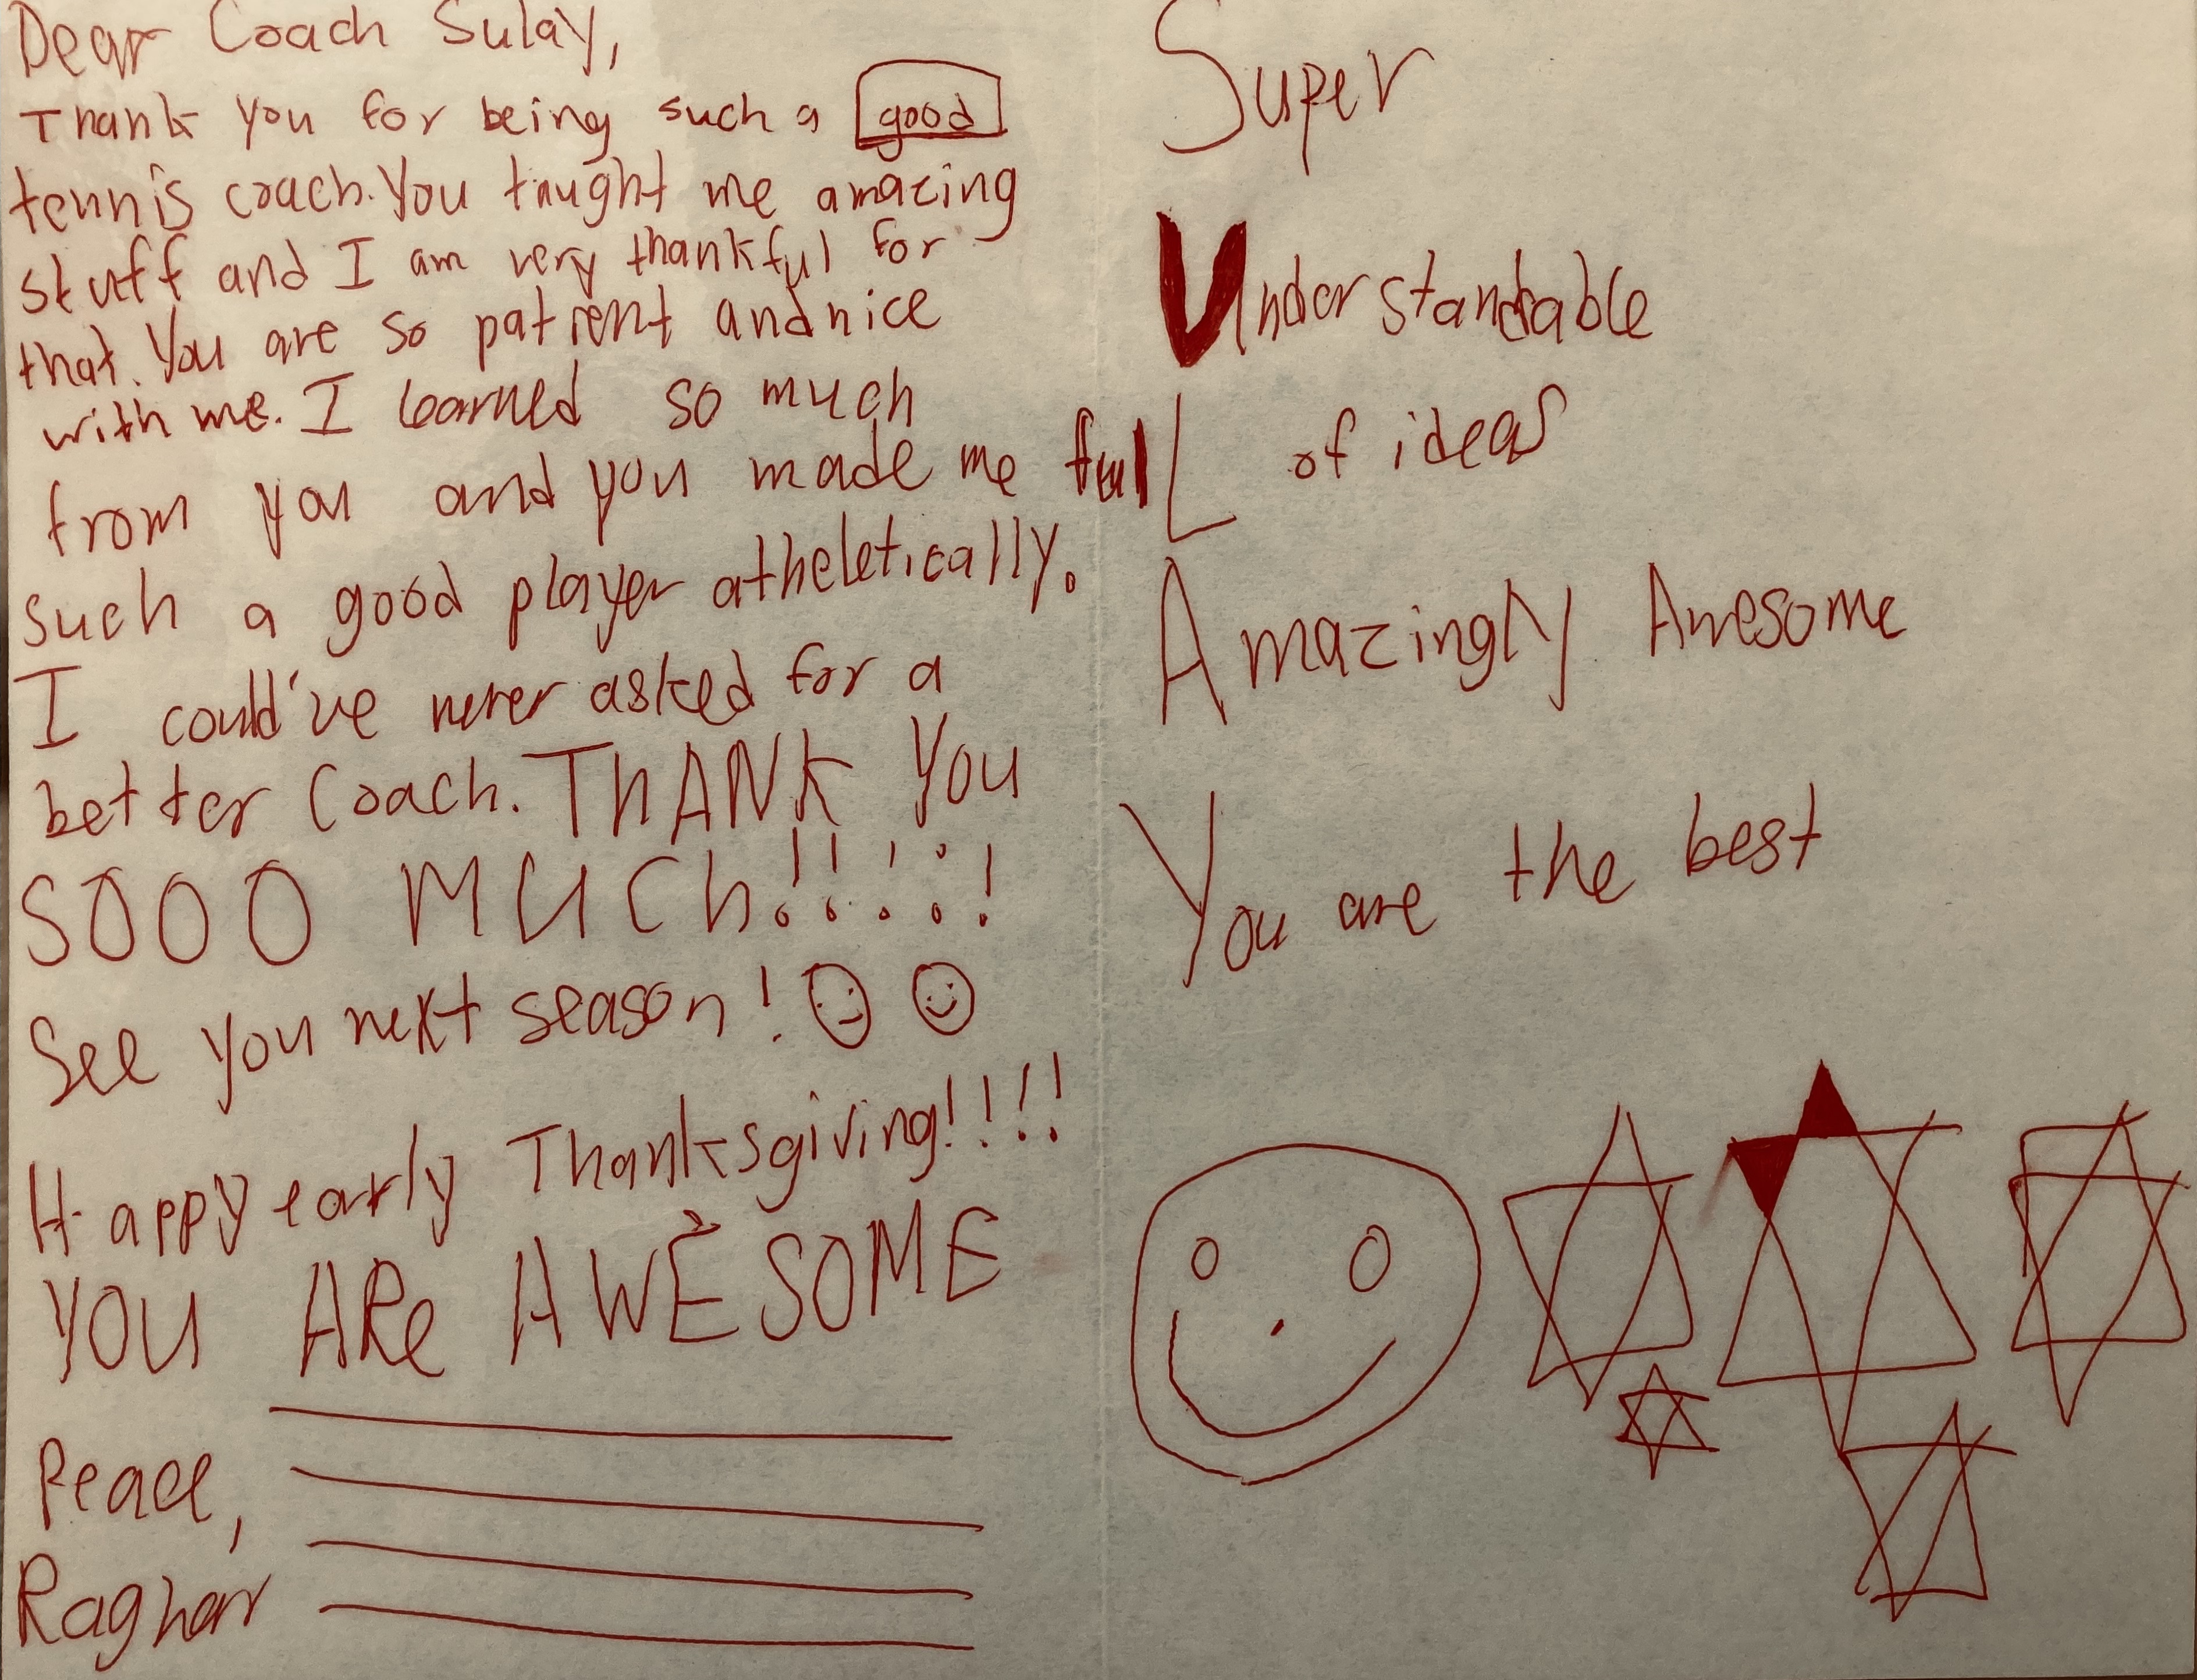 Dear Coach Sulay,
Thank you for being such a good
tennis coach. You taught me amazing
stuff and I am very thankful for
that. You are so patient and nice
with me. I learned so much
from you and you made me
such a good player atheletically.
I could've never asked for a
better Coach. THANK YOU
SOOO MUCH!!!!!
See you next season!
Happy early Thanksgiving!!!!
YOU ARe AWESOME
Peace,
Super
Understandable
fulL of ideas
Amazingly Awesome
You are the best